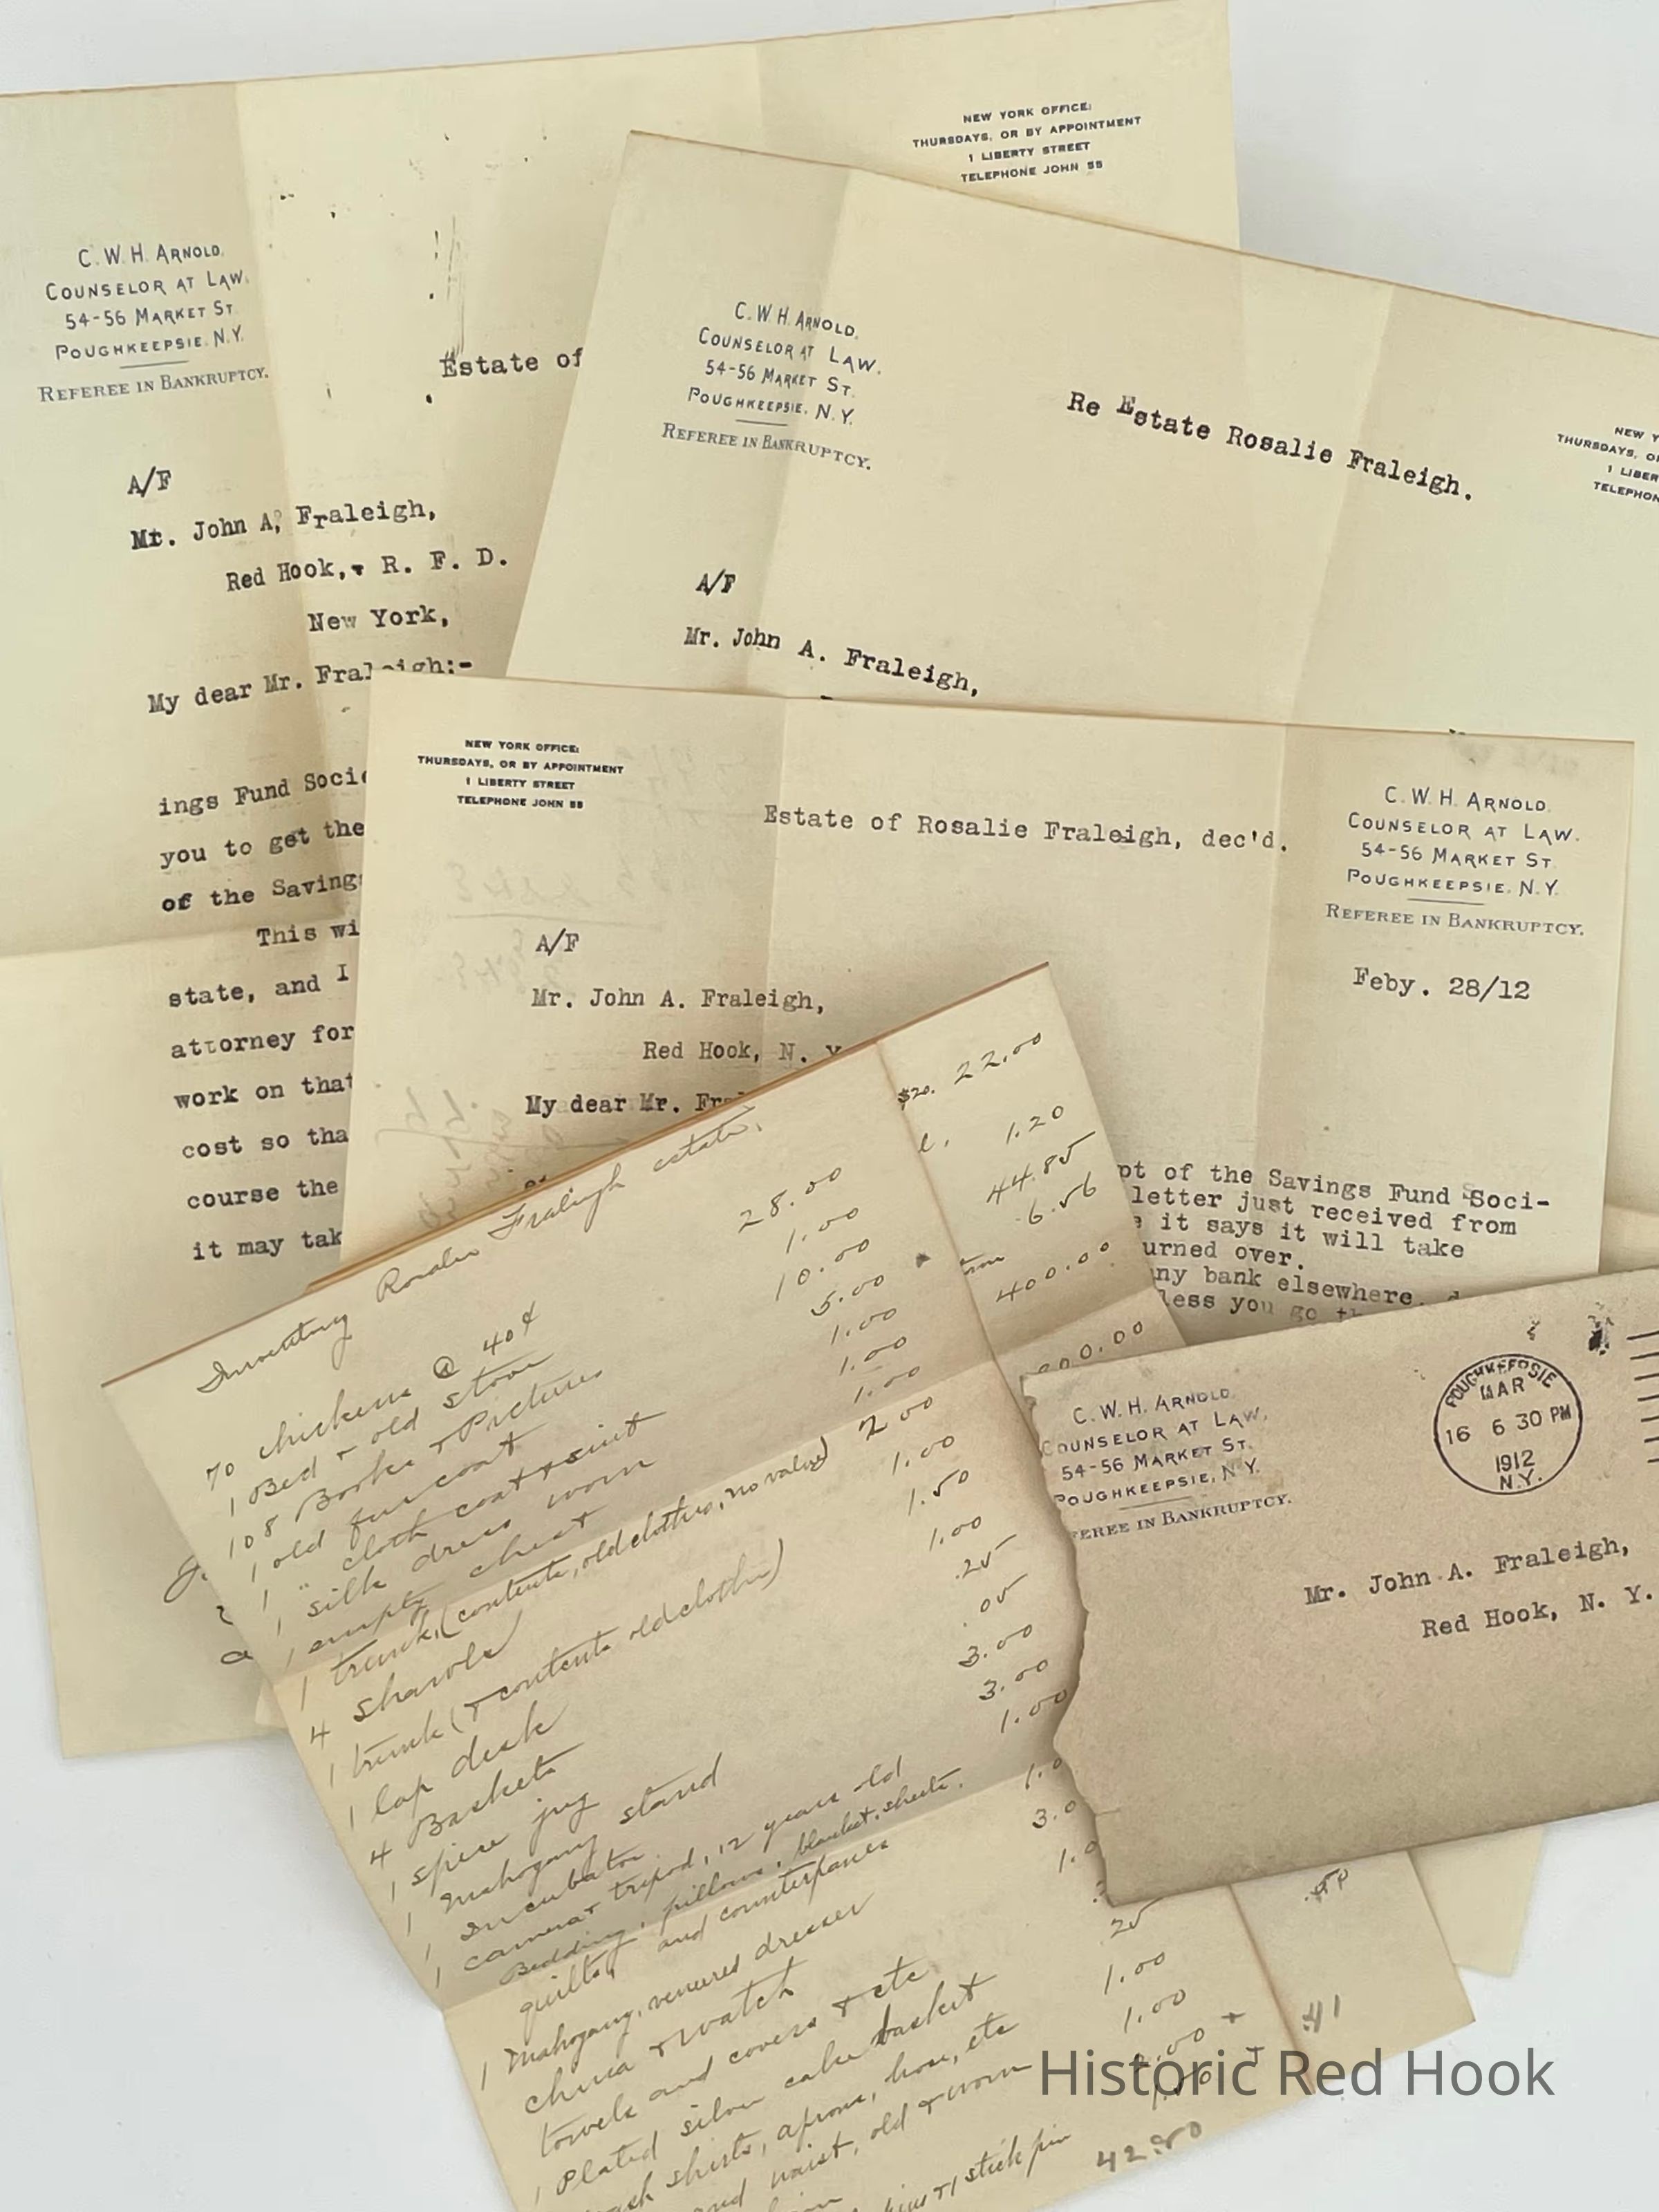 NEW YORK OFFICE:
THURSDAYS, OR BY APPOINTMENT
1 LIBERTY STREET
TELEPHONE JOHN 55
C. W. H. ARNOLD,
COUNSELOR AT LAW,
54-56 MARKET ST.
POUGHKEEPSIE, N.Y.
REFEREE IN BANKRUPTCY.
Estate of
A/F
Mr. John A, Fraleigh,
Red Hook, R. F. D.
New York,
My dear Mr. Fraleigh:-
ings Fund Socie
you to get the
of the Saving
This wi
state, and I
attorney for
work on that
cost so tha
course the
it may tak
C. W. H. ARNOLD,
COUNSELOR AT LAW,
54-56 MARKET ST.
POUGHKEEPSIE, N.Y.
REFEREE IN BANKRUPTCY.
Re Estate Rosalie Fraleigh.
NEW Y
THURSDAYS, O
1 LIBER
TELEPHON
A/F
Mr. John A. Fraleigh,
NEW YORK OFFICE:
THURSDAYS, OR BY APPOINTMENT
1 LIBERTY STREET
TELEPHONE JOHN 55
Estate of Rosalie Fraleigh, dec'd.
C. W. H. ARNOLD,
COUNSELOR AT LAW,
54-56 MARKET ST.
POUGHKEEPSIE, N.Y.
REFEREE IN BANKRUPTCY.
Feby. 28/12
A/F
Mr. John A. Fraleigh,
Red Hook, N. Y
My dear Mr. Fra
pt of the Savings Fund Soci-
letter just received from
e it says it will take
urned over.
ny bank elsewhere,
less you go
Inventory Rosalie Fraleigh estate.
70 chickens @ 40¢ 28.00
1 Bed & old stove 1.00
108 Books & Pictures 10.00
1 old fur coat 5.00
1 " cloth coat & suit 1.00
1 silk dress worn 1.00
1 empty chest 1.00
1 trunk, (contents, old clothes, no value) 2.00
4 shawls 1.00
1 trunk (& contents old clothes) 1.50
1 lap desk 1.00
4 Baskets .25
1 spice jug .05
1 Mahogany stand 3.00
1 Incubator 3.00
1 camera & tripod, 12 years old 1.00
Bedding, pillows, blanket, sheets,
quilts, and counterpanes
1 Mahogany, veneered dresser
china & watch
towels and covers & etc
1 Plated silver cake basket
shirts, aprons, hose, etc
and waist, old & worn
stick pin
42.80
$20. 22.00
1.20
44.85
6.56
400.00
00.00
.50
41
C. W. H. ARNOLD,
COUNSELOR AT LAW,
54-56 MARKET ST.
POUGHKEEPSIE, N.Y.
FEREE IN BANKRUPTCY.
POUGHKEEPSIE
MAR
16 6 30 PM
1912
N.Y.
Mr. John A. Fraleigh,
Red Hook, N. Y.
Historic Red Hook